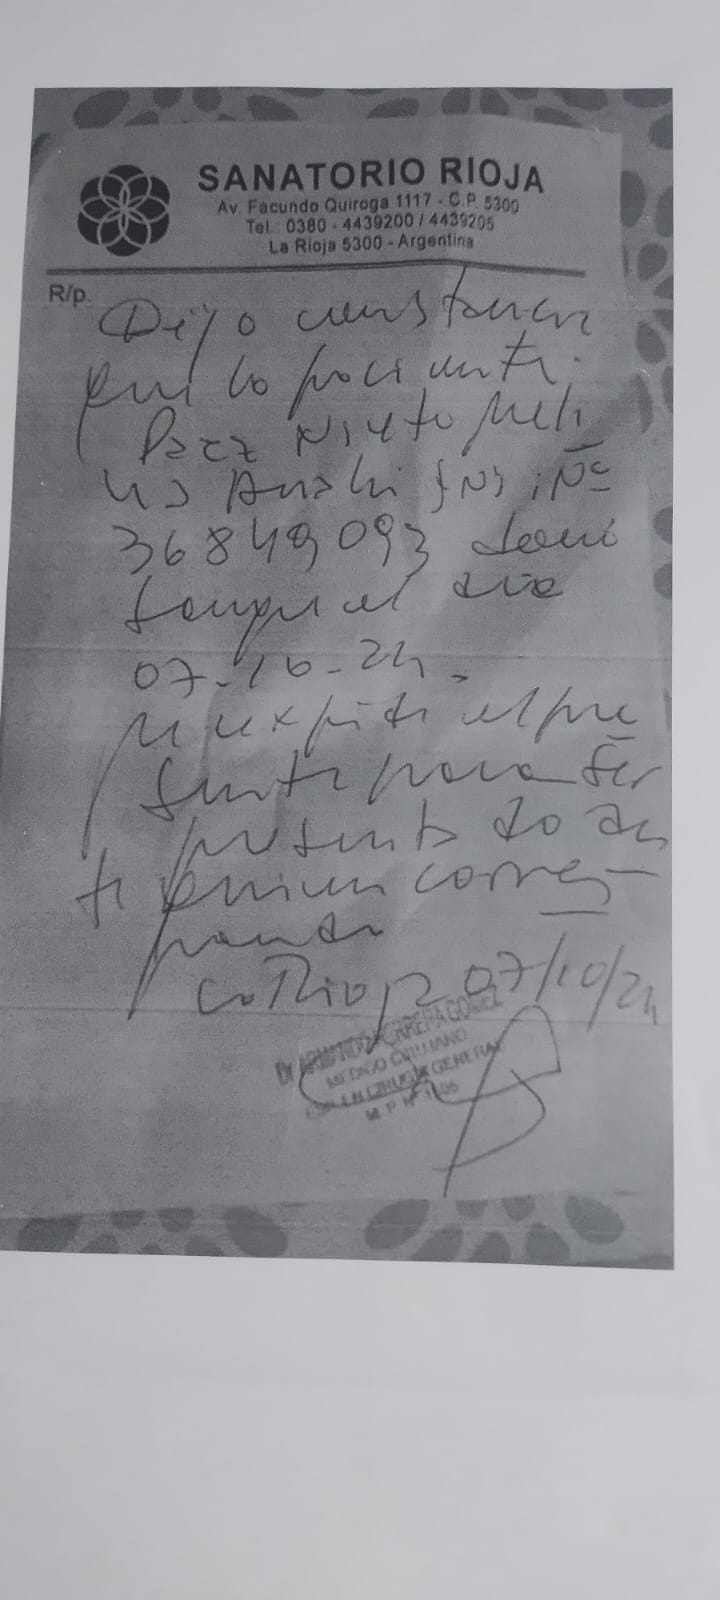 SANATORIO RIOJA
Av. Facundo Quiroga 1117 - C.P. 5300
Tel.: 0380 - 4439200 / 4439205
La Rioja 5300 - Argentina
R/p.
Dejo constancia
que la paciente
Paez Nieto
Anahi DNI Nº
36849093 dono
sangre el dia
07-10-24.
se expide el pre
sente para ser
presentado an
te quien corres-
ponda
La Rioja 07/10/24
Dr. ARMANDO GOMEZ
MEDICO CIRUJANO
ESP. EN CIRUGIA GENERAL
M. P. Nº